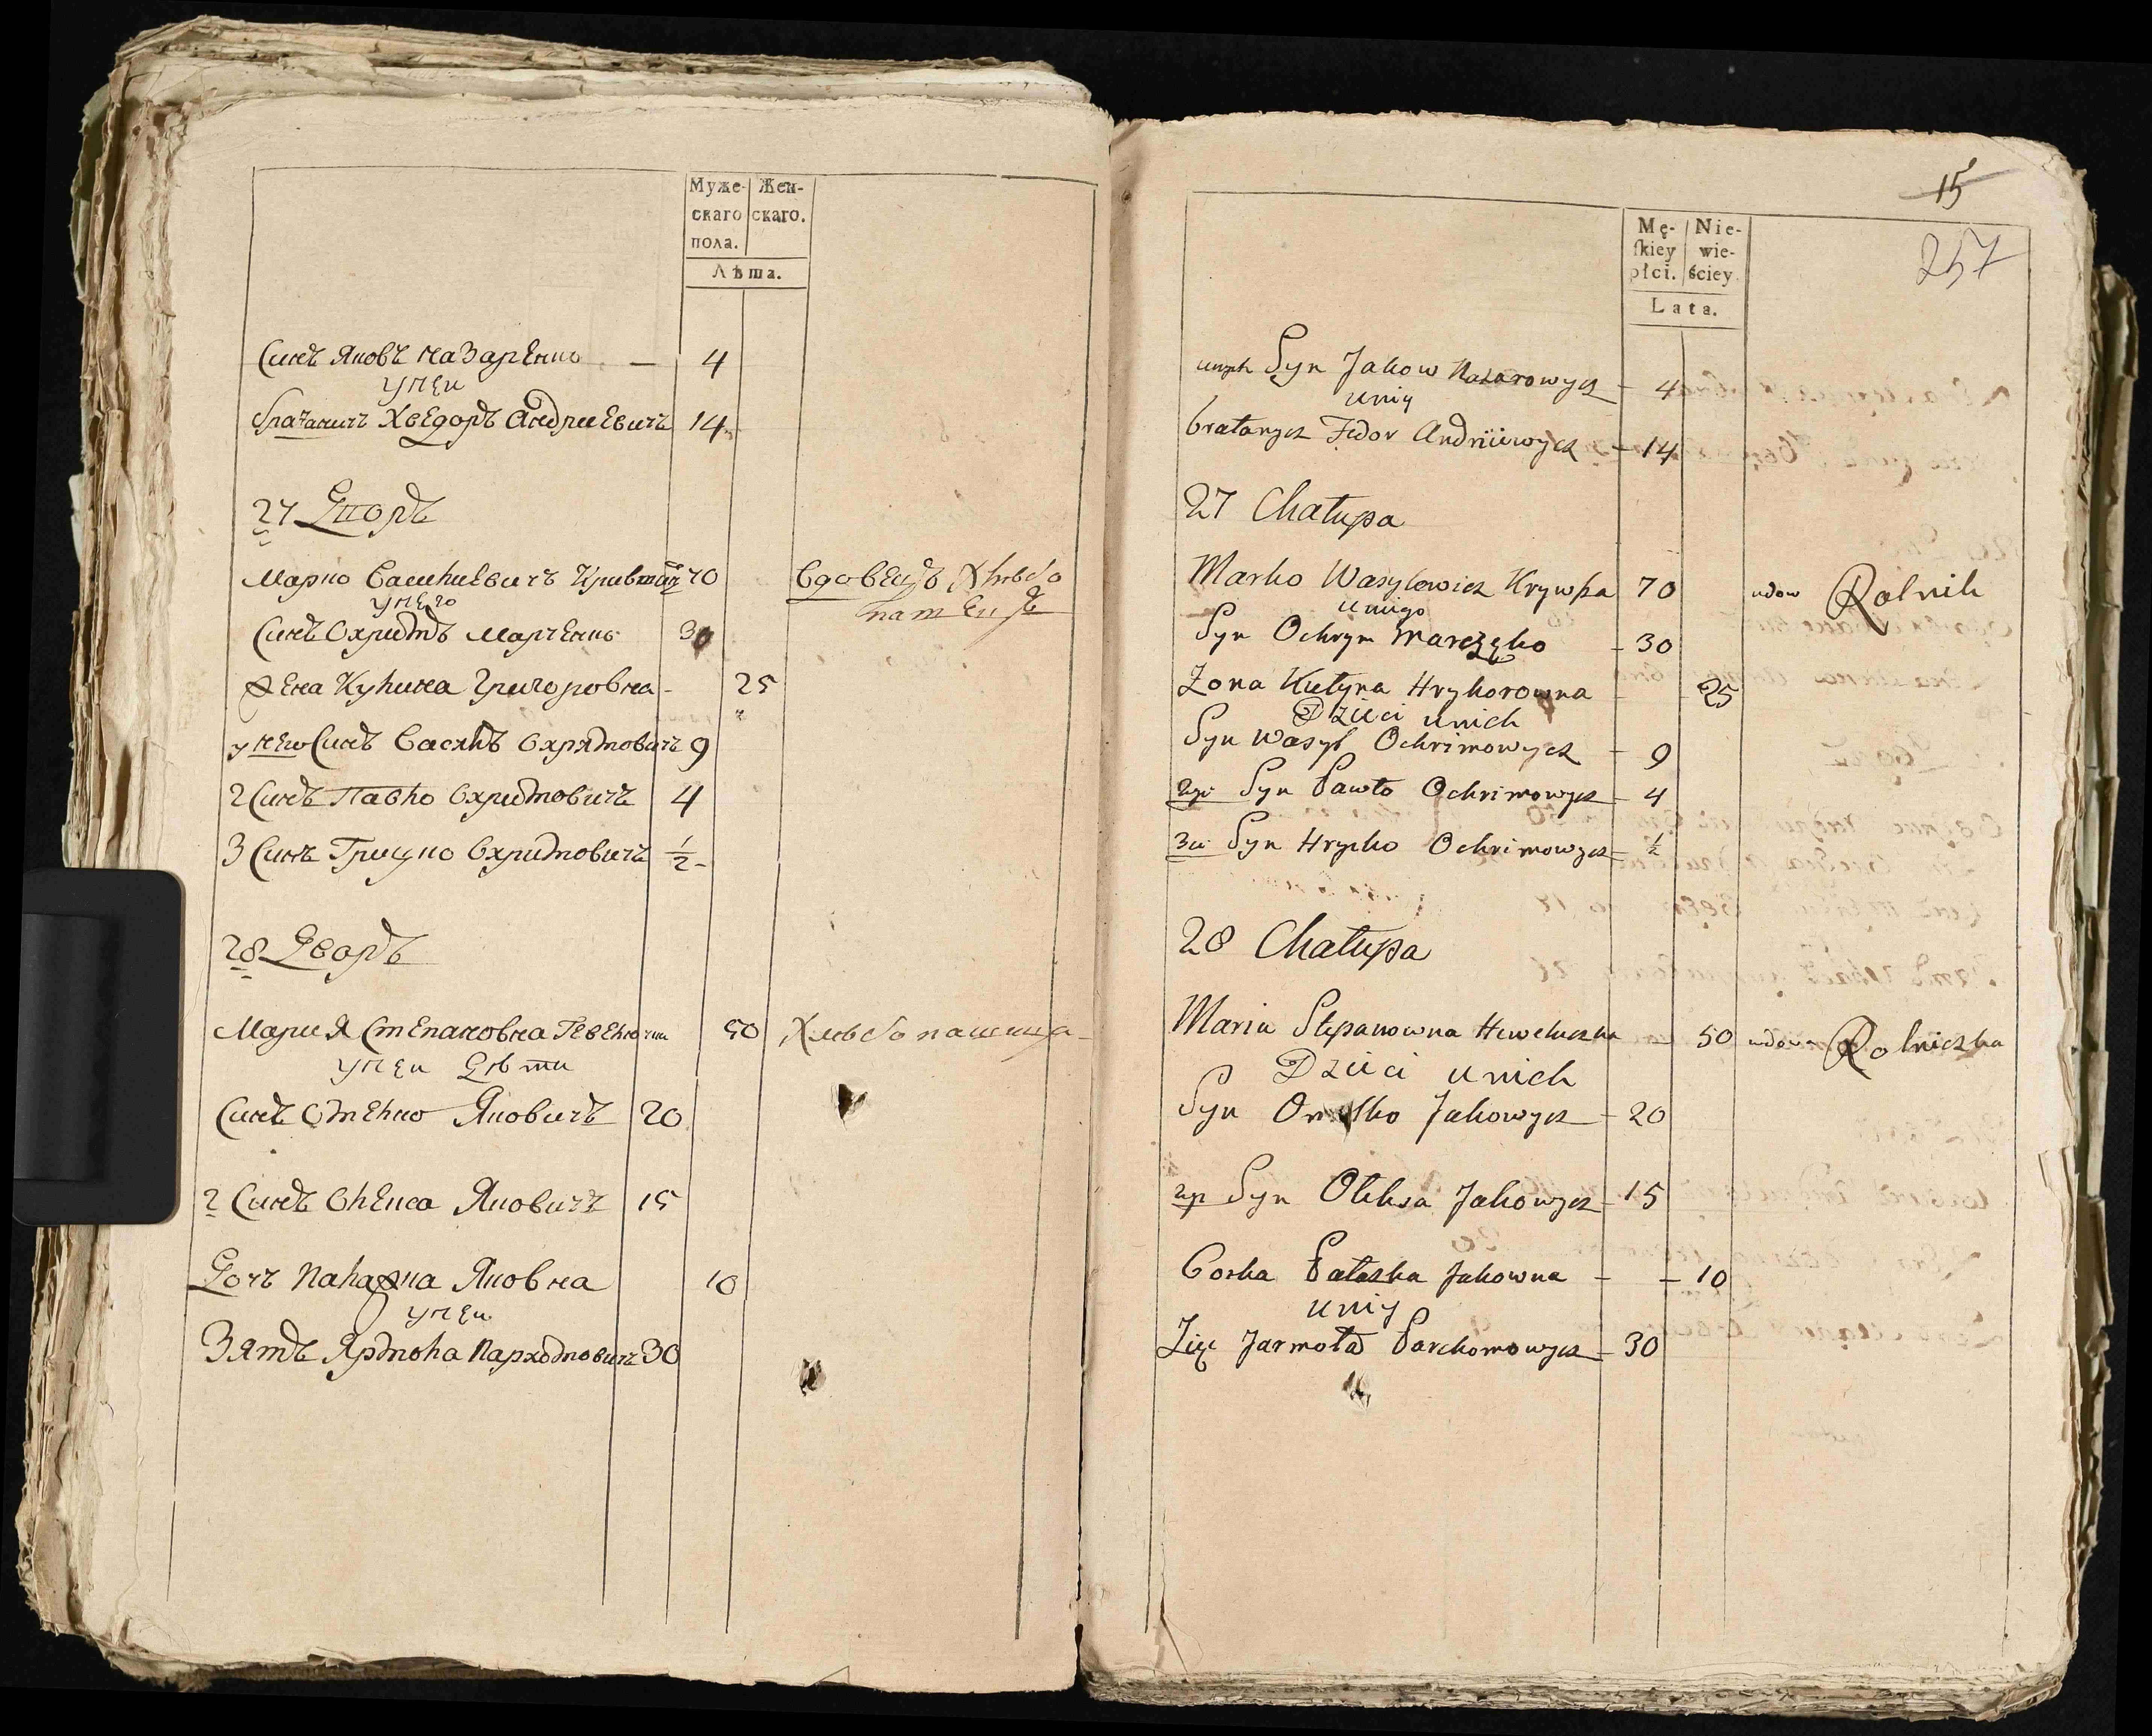 Муже- Жен-
скаго скаго.
пола.
Лѣта.
Синъ Яковъ Назаренко — 4
У неи
братаничъ Хведоръ Андриевичъ 14
27 Дворъ
Марко Василиевичъ 70 вдовецъ Хлѣбо
У него
Синъ Охримъ Марченко 30
Жена Кулина Григоровна - 25
у него Синъ Василь Охримовичъ 9
2 Синъ Павло Охримовичъ 4
3 Синъ Грицко Охримовичъ ½ -
28 Дворъ
Мария Степановна 50 Хлебопашица
У неи Дѣти
Синъ Омелко Яковичъ 20
2 Синъ Олекса Яковичъ 15
Дочъ Палажка Яковна 10
У неи
Зять Ярмола Пархомовичъ 30
15
257
Mę- Nie-
skiey wie-
płci. ściey.
Lata.
Syn Jakow Nazarowycz - 4
uniy
bratanycz Fedor Andriiewycz - 14
27 Chałupa
Marko Wasylewicz Krywka 70 wdow Rolnik
unigo
Syn Ochrym Marczęko - 30
Zona Kulyna Hryhorowna - 25
Dzieci unich
Syn Wasyl Ochrimowycz - 9
2gi Syn Pawło Ochrimowycz - 4
3ci Syn Hrycko Ochrimowycz - ½
28 Chałupa
Maria Stepanowna Heweluczka - 50 wdowa Rolniczka
Dzieci unich
Syn Omelko Jakowycz - 20
2gi Syn Oleksa Jakowycz - 15
Corka Palaszka Jakowna - - 10
uniy
Zięć Jarmoła Parchomowycz - 30